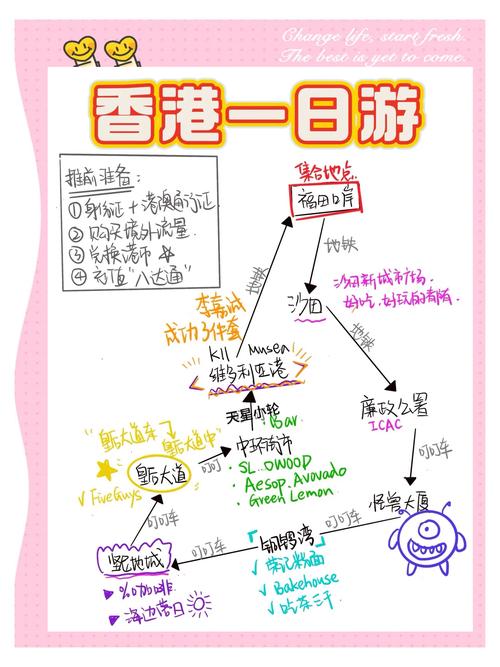 Change life, start fresh.
The best is yet to come.
香港一日游
提前准备：
①身份证＋港澳通行证
②购买境外流量
③兑换港币
④充值"八达通"
集合地点
福田口岸
地铁
地铁
沙田
沙田新城市广场
好吃、好玩的都有.
李嘉诚
成功3件套
K11 Musea
维多利亚港
地铁
廉政公署
ICAC
天星小轮
Bar
"皇后大道东
皇后大道中"
中环街市
叮叮车
皇后大道
叮叮
SL DWOOD
Aesop. Avovado
Green Lemon
√ Five Guys
怪兽大厦
叮叮车
铜锣湾
叮叮车
叮叮车
√ 荣记粉面
√ Bakehouse
√ 吃茶三千
坚尼地城
▶ %咖啡
▶ 海边落日